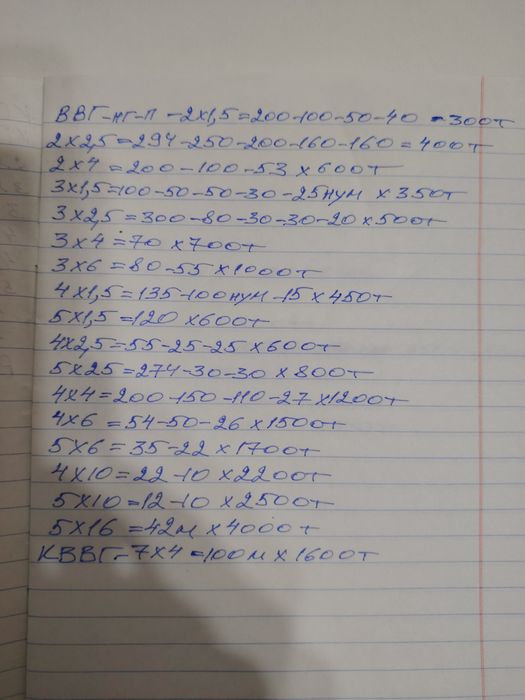 ВВГ-нг-П -2х1,5=200-100-50-40 -300т
2х2,5=294-250-200-160-160=400т
2х4=200-100-53х600т
3х1,5=100-50-50-30-25нум х350т
3х2,5=300-80-30-30-20х500т
3х4=70х700т
3х6=80-55х1000т
4х1,5=135-100нум-15х450т
5х1,5=120х600т
4х2,5=55-25-25х600т
5х25=274-30-30х800т
4х4=200-150-110-27х1200т
4х6=54-50-26х1500т
5х6=35-22х1700т
4х10=22-10х2200т
5х10=12-10х2500т
5х16=42мх4000т
КВВГ-7х4=100мх1600т